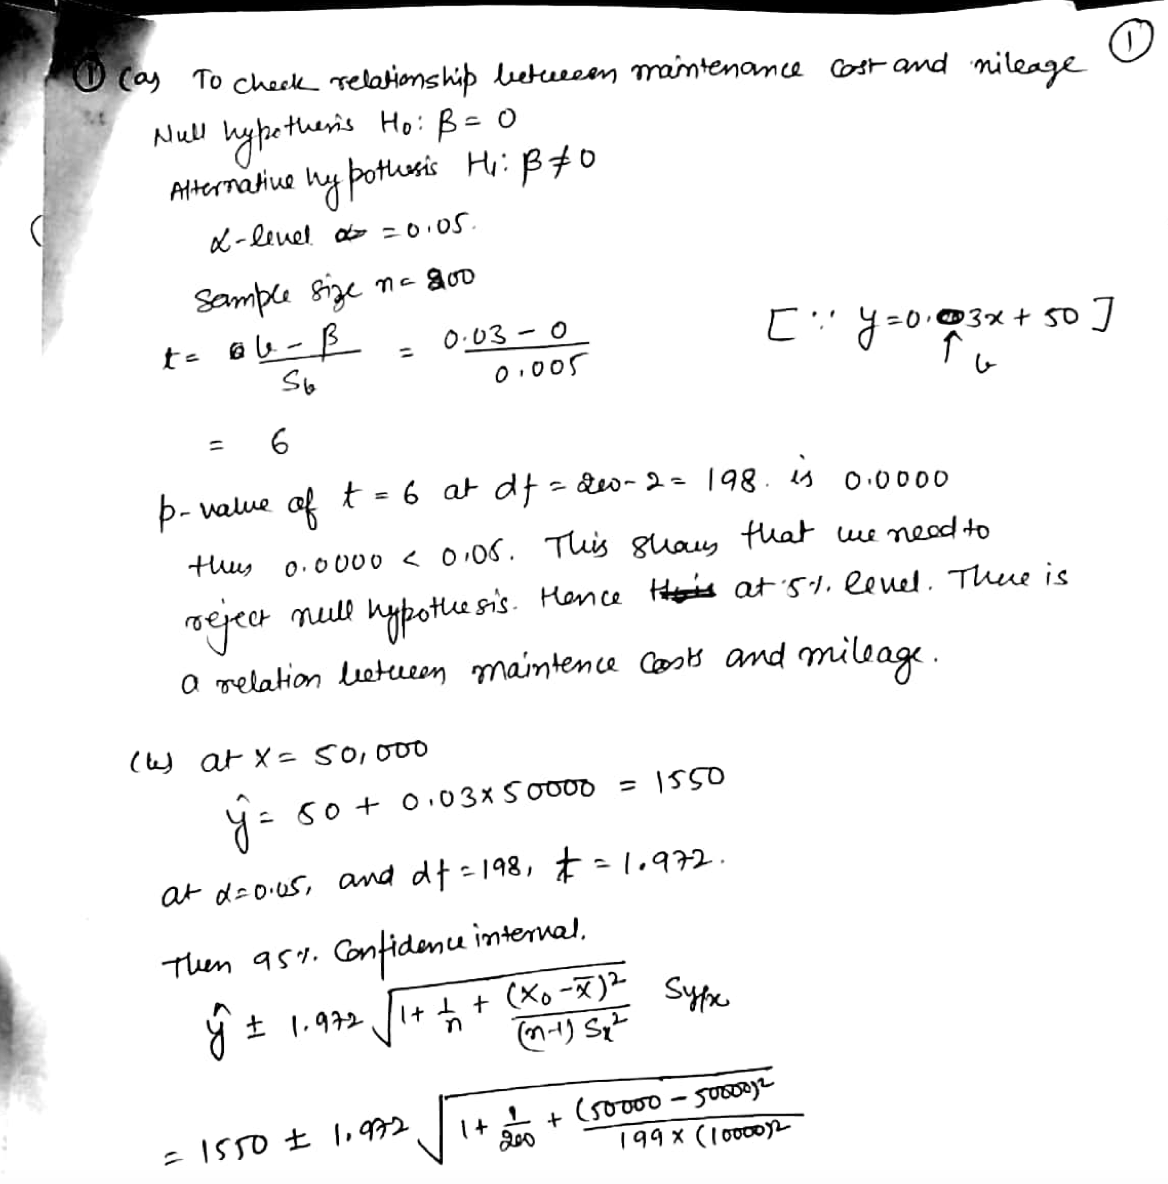 ①
① (a) To check relationship between maintenance cost and mileage
Null hypothesis H₀: β = 0
Alternative hypothesis H₁: β ≠ 0
α-level = 0.05.
Sample size n = 200
t = (b - β) / S_b = (0.03 - 0) / 0.005 [∵ y = 0.03x + 50]
↑ b
= 6
p-value of t = 6 at df = 200 - 2 = 198. is 0.0000
thus 0.0000 < 0.05. This shows that we need to
reject null hypothesis. Hence at 5% level. There is
a relation between maintence costs and mileage.
(b) at X = 50,000
ŷ = 50 + 0.03 x 50000 = 1550
at α = 0.05, and df = 198, t = 1.972.
Then 95% Confidence interval.
ŷ ± 1.972 √(1 + 1/n + (X₀ - x̄)² / ((n-1) Sx²)) Sy/x
= 1550 ± 1.972 √(1 + 1/200 + (50000 - 50000)² / (199 x (10000)²))